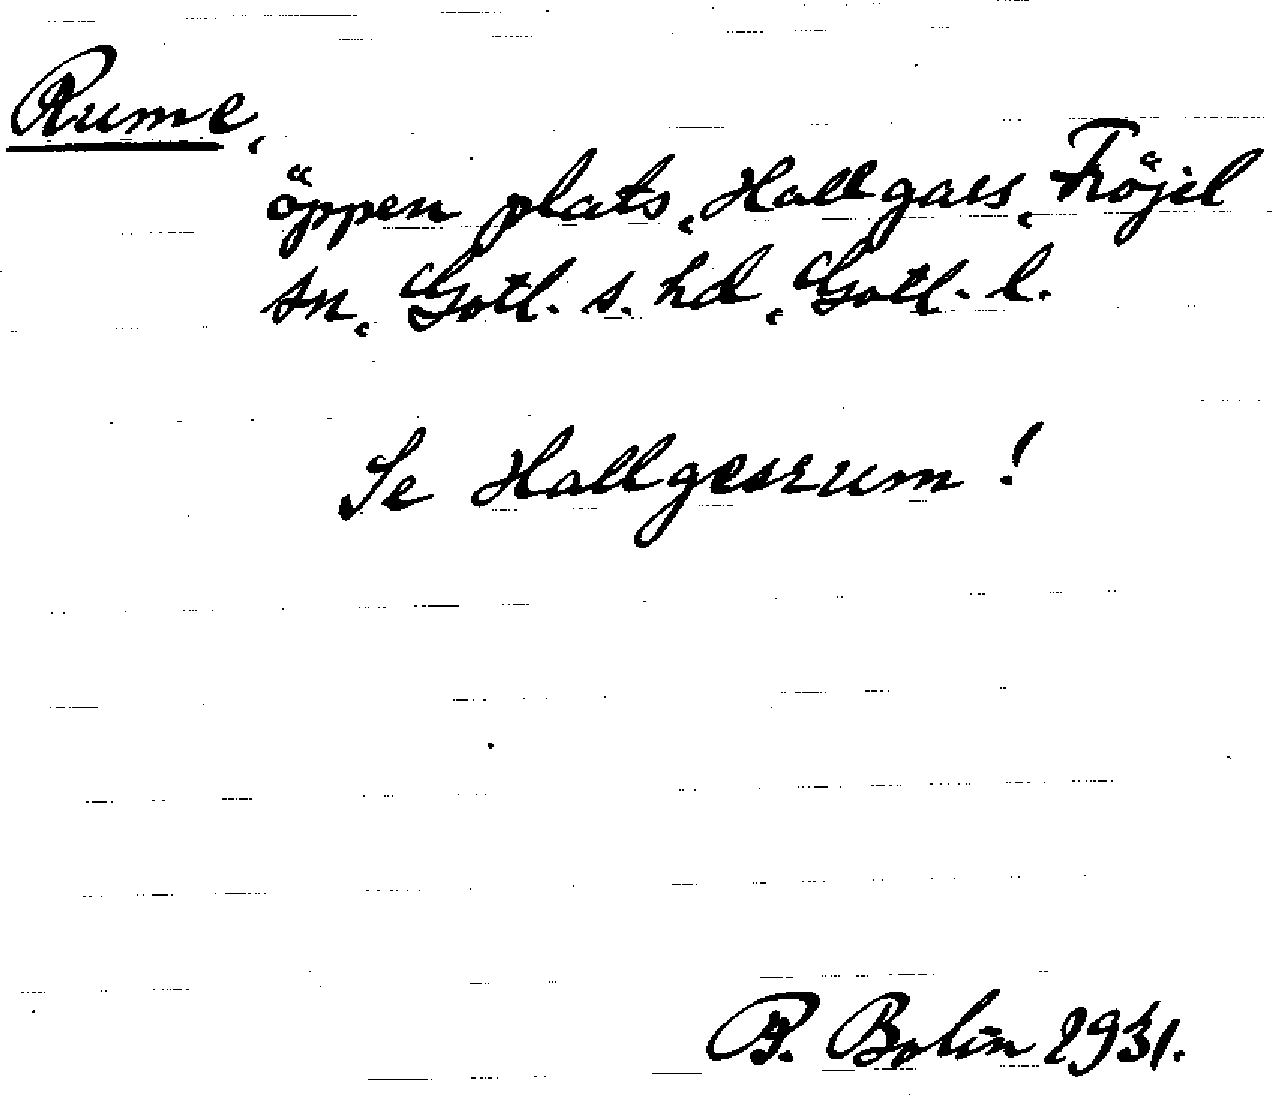 Rume,
öppen plats, Hallgaes, Fröjel
sn, Gotl. s. hd, Gotl. l.
Se Hallgesrum!
B. Bolin 1931.